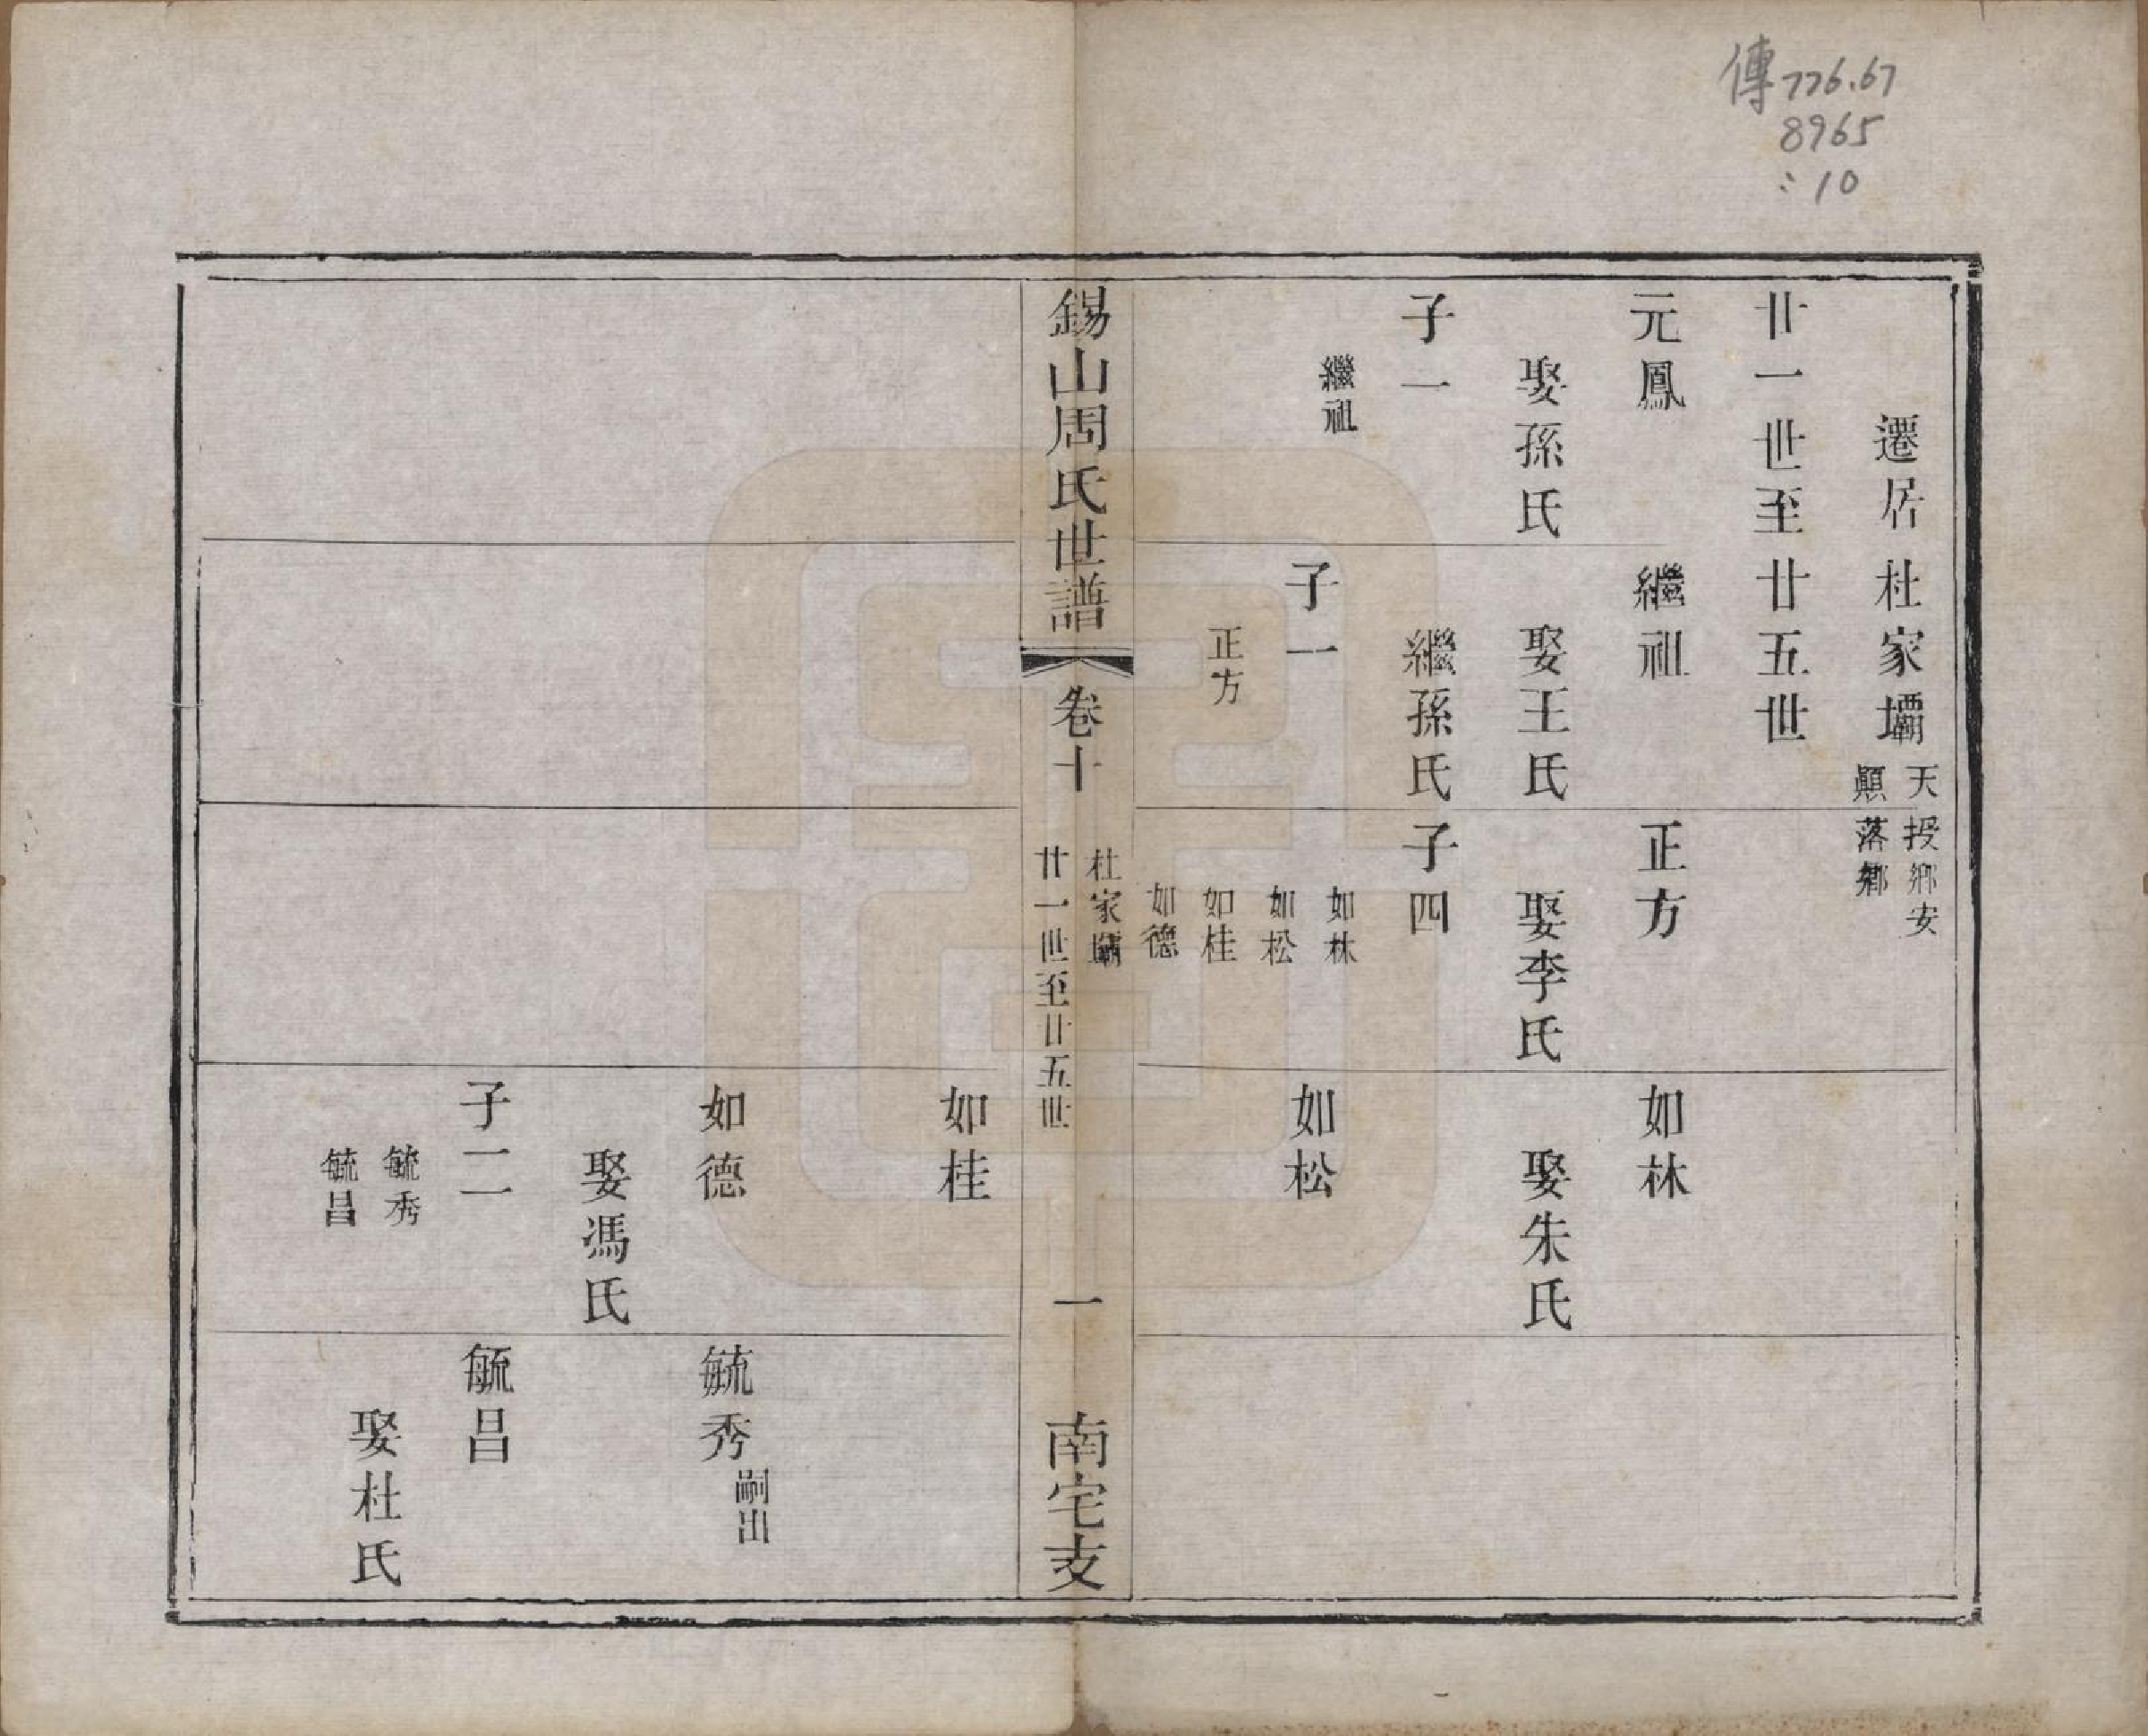 傳776.67
8965
:10
遷居杜家壩
天授鄉安
顚落鄉
廿一世至廿五世
元鳳
娶孫氏
子一
繼祖
繼祖
娶王氏
繼孫氏
子一
正方
正方
娶李氏
子四
如林
如松
如桂
如德
如林
娶朱氏
如松
錫山周氏世譜
卷十
杜家壩
廿一世至廿五世
一
南宅支
如桂
如德
娶馮氏
子二
毓秀
毓昌
毓秀
嗣出
毓昌
娶杜氏